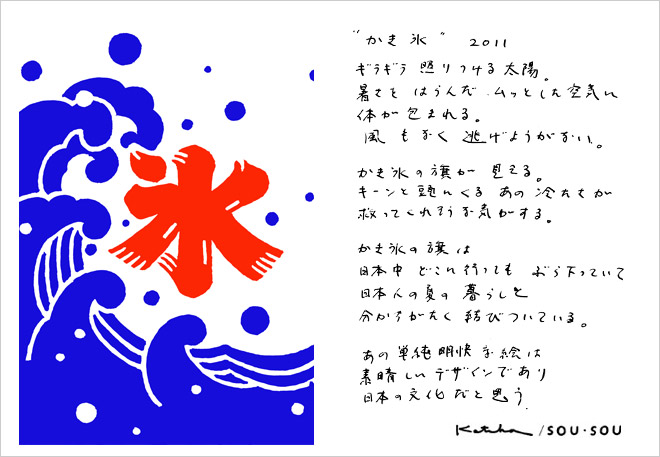 氷
"かき氷" 2011
ギラギラ 照りつける太陽。
暑さを はらんだ ムッとした空気に
体が包まれる。
風もなく 逃げようがない。
かき氷の旗が 見える。
キーンと頭にくる あの冷たさが
救ってくれそうな気がする。
かき氷の旗は
日本中 どこに行っても ぶら下っていて
日本人の夏の 暮らしと
分かちがたく 結びついている。
あの 単純明快な絵は
素晴しいデザインであり
日本の文化だと思う
/SOU・SOU